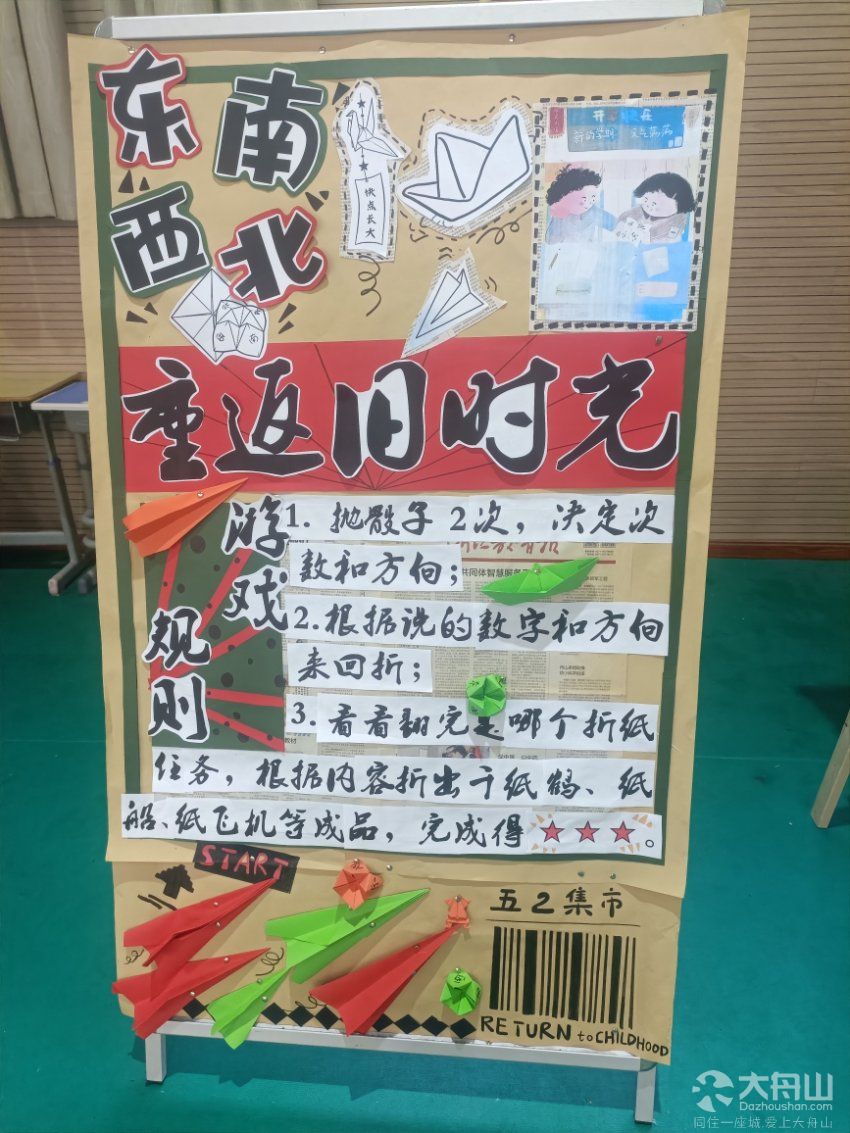 东南
西北
快点长大
重返旧时光
游戏
规则
1. 抛骰子2次，决定次
数和方向；
共同体智慧服务
2.根据说的数字和方向
来回折；
3. 看看翻完是哪个折纸
任务，根据内容折出千纸鹤、纸
船、纸飞机等成品，完成得★★★。
START
五2集市
RETURN to CHILDHOOD
大舟山
Dazhoushan.com
同住一座城.爱上大舟山